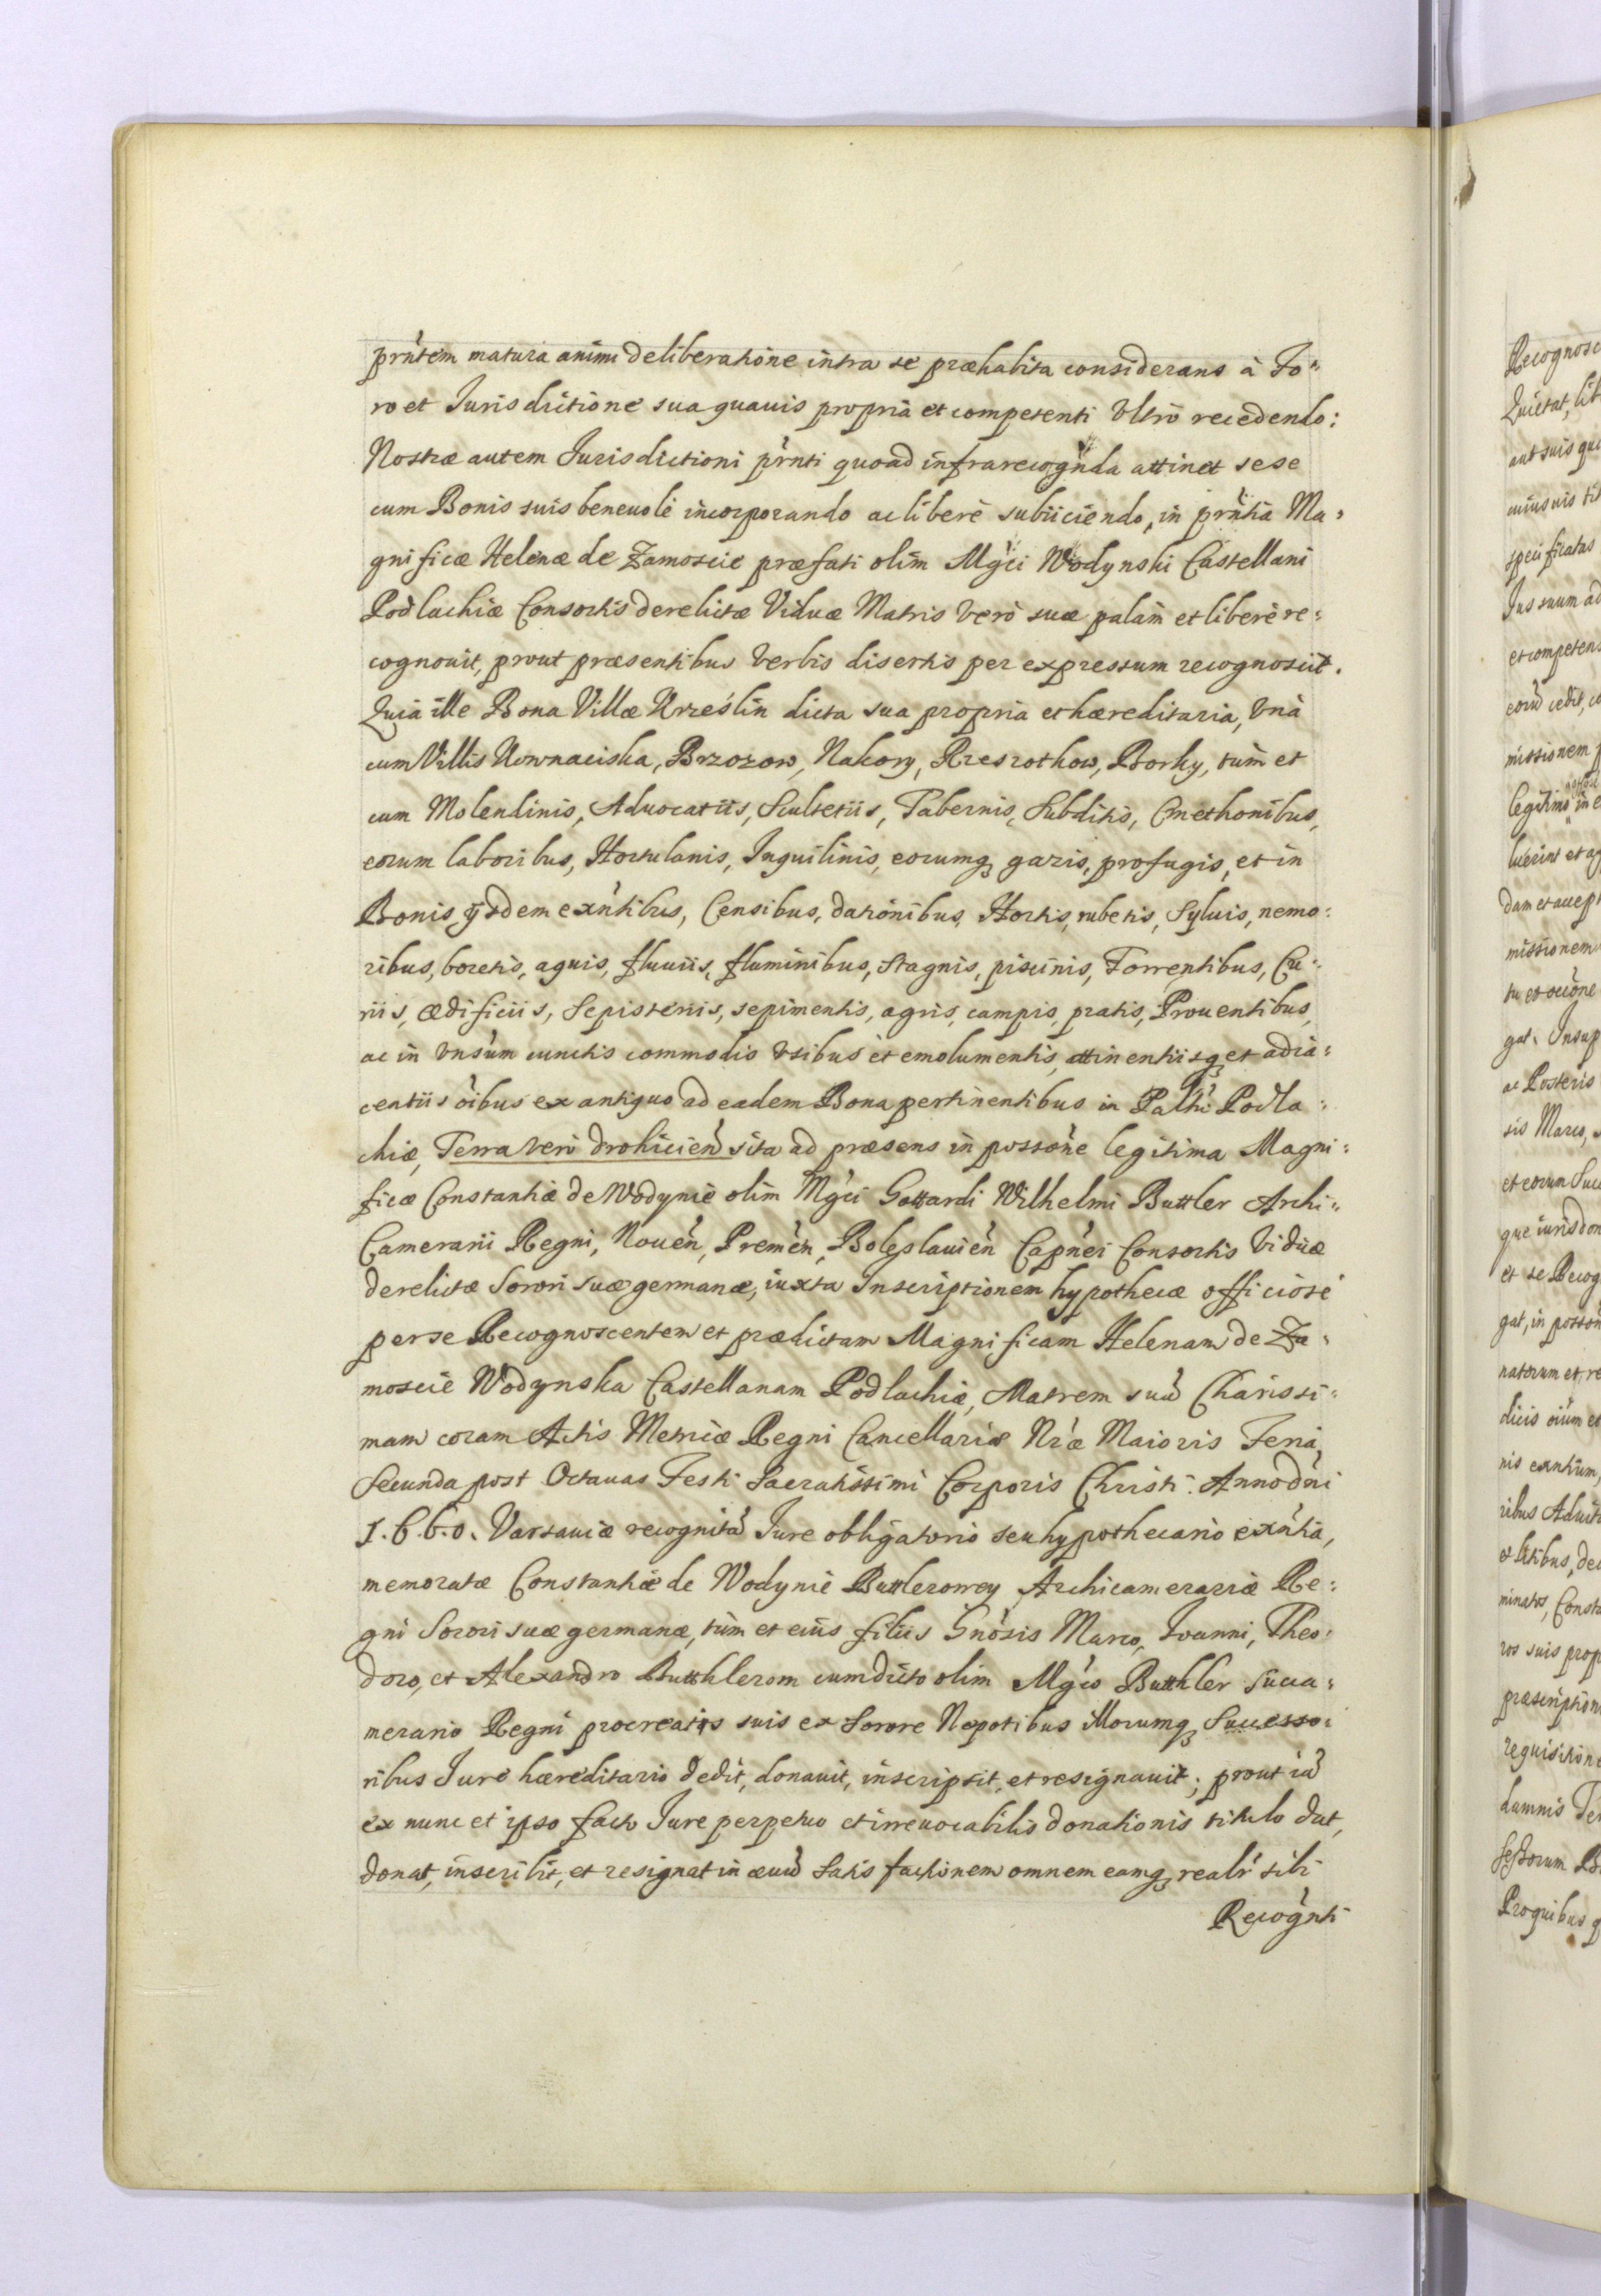 prntem matura animi deliberatione intra se præhabita considerans à Fo=
ro et Jurisdictione sua quauis propria et competenti Vltro recedendo:
Nostræ autem Jurisdictioni prnti quoad infrarecognda attinet sese
cum Bonis suis beneuole incorporando ac liberè subiiciendo, in prntia Ma=
gnificæ Helenæ de Zamoscie præfati olim Mgci Wodynski Castellani
Podlachiæ Consortis derelictæ Viduæ Matris Verò suæ palam et liberè re=
cognouit, prout præsentibus Verbis disertis per expressum recognoscit.
Quia ille Bona Villæ Krześlin dicta sua propria et hæreditaria, Vnà
cum Villis Kownaciska, Brzozow, Nakory, Rzeszothow, Borky, tum et
cum Molendinis, Aduocatiis, Scultetiis, Tabernis, Subditis, Cmethonibus,
eorum laboribus, Hortulanis, Inquilinis, eorumq gazis, profugis, et in
Bonis ijsdem exntibus, Censibus, dationibus, Hortis, rubetis, Syluis, nemo=
ribus, boretis, aquis, fluuiis, fluminibus, Stagnis, piscinis, Torrentibus, Cu=
riis, ædificiis, Sepisteriis, sepimentis, agris, campis, pratis, Prouentibus,
ac in Vnsum cunctis commodis Vsibus et emolumentis, attinentiisq et adia=
centiis oibus ex antiquo ad eadem Bona pertinentibus in Palttu Podla=
chiæ, Terra Vero drohicien sita ad præsens in possone legitima Magni=
ficæ Constantiæ de Wodynie olim Mgci Gottardi Wilhelmi Buttler Archi=
Camerarii Regni, Nouen, Premen, Boleslauien Capnei Consortis Viduæ
derelictæ Sorori suæ germanæ, iuxta Inscriptionem hypothecæ officiose
per se Recognoscentem et prædictam Magnificam Helenam de Za=
moscie Wodynska Castellanam Podlachiæ, Matrem suã Charissi=
mam coram Actis Metricæ Regni Cancellariæ Nræ Maioris Feria
Secunda post Octauas Festi Sacratissimi Corporis Christi Anno dni
1.6.6.0. Varsauiæ recognitã Jure obligatorio seu hypothecario exntia,
memoratæ Constantiæ de Wodynie Buttlerowey Archicamerariæ Re=
gni Sorori suæ germanæ, tum et eius filiis Gnosis Marco, Ioanni, Theo=
doro, et Alexandro Butthlerom cum dicto olim Mgco Butthler Succa=
merario Regni procreatis suis ex Sorore Nepotibus illorumq Successo=
ribus Jure hæreditario dedit, donauit, inscripsit, et resignauit; prout iã
ex nunc et ipso facto Jure perpetuo et irreuocabilis donationis titulo dat,
donat, inscribit, et resignat in æuũ Satis factionem omnem eamq realr sibi
Recognti